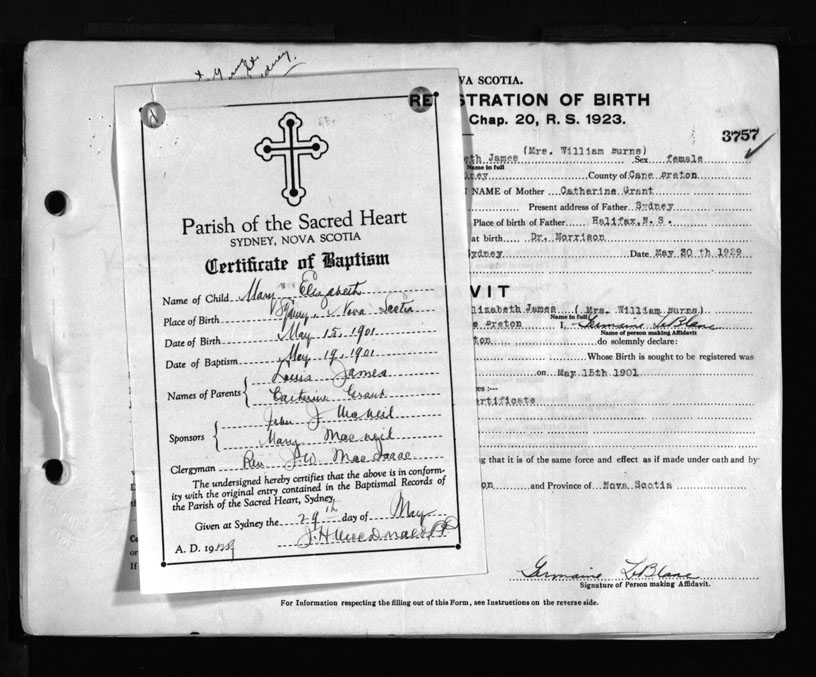 Parish of the Sacred Heart
SYDNEY, NOVA SCOTIA
Certificate of Baptism
Name of Child Mary Elizabeth
Place of Birth Sydney, Nova Scotia
Date of Birth May 15, 1901
Date of Baptism May 19, 1901
Names of Parents { Louis James
Catherine Grant
Sponsors { John J MacNeil
Mary MacNeil
Clergyman Rev J. W. MacIsaac
The undersigned hereby certifies that the above is in conform-
ity with the original entry contained in the Baptismal Records of
the Parish of the Sacred Heart, Sydney.
Given at Sydney the 29th day of May
A. D. 1929
VA SCOTIA.
REGISTRATION OF BIRTH
Chap. 20, R. S. 1923.
3757
(Mrs. William Burns)
eth James Sex female
Name in full
dney County of Cape Breton
NAME of Mother Catherine Grant
Present address of Father Sydney
Place of birth of Father Halifax, N. S.
at birth Dr. Morrison
Sydney Date May 30 th 1929
VIT
lizabeth James (Mrs. William Burns)
Name in full
e Breton I, Germaine LeBlanc
Name of person making Affidavit
ton do solemnly declare:
Whose Birth is sought to be registered was
on May 15th 1901
es:—
ertificate
ng that it is of the same force and effect as if made under oath and by
on and Province of Nova Scotia
Germaine LeBlanc
Signature of Person making Affidavit.
For Information respecting the filling out of this Form, see Instructions on the reverse side.